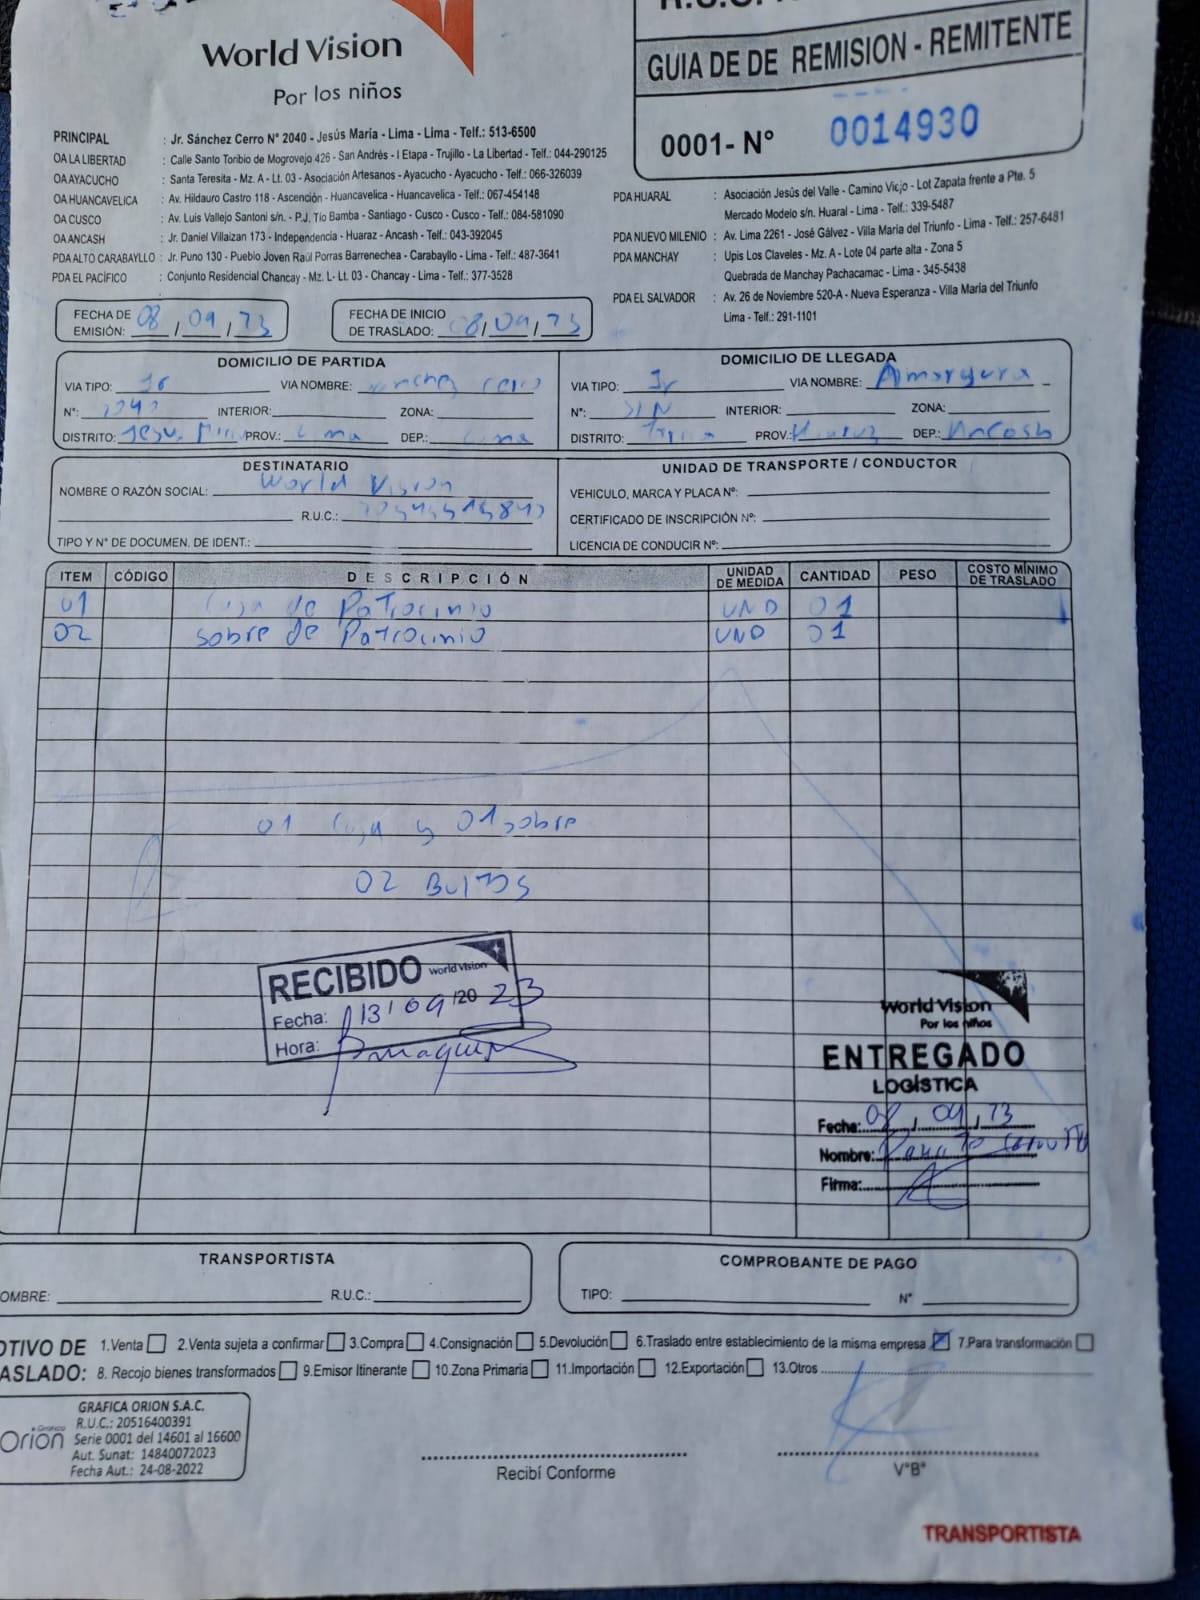 World Vision
Por los niños
GUIA DE DE REMISION - REMITENTE
0001- N° 0014930
PRINCIPAL : Jr. Sánchez Cerro N° 2040 - Jesús María - Lima - Lima - Telf.: 513-6500
OA LA LIBERTAD : Calle Santo Toribio de Mogrovejo 426 - San Andrés - I Etapa - Trujillo - La Libertad - Telf.: 044-290125
OA AYACUCHO : Santa Teresita - Mz. A - Lt. 03 - Asociación Artesanos - Ayacucho - Ayacucho - Telf.: 066-326039
OA HUANCAVELICA : Av. Hildauro Castro 118 - Ascención - Huancavelica - Huancavelica - Telf.: 067-454148
OA CUSCO : Av. Luis Vallejo Santoni s/n. - P.J. Tío Bamba - Santiago - Cusco - Cusco - Telf.: 084-581090
OA ANCASH : Jr. Daniel Villaizan 173 - Independencia - Huaraz - Ancash - Telf.: 043-392045
PDA ALTO CARABAYLLO : Jr. Puno 130 - Pueblo Joven Raúl Porras Barrenechea - Carabayllo - Lima - Telf.: 487-3641
PDA EL PACÍFICO : Conjunto Residencial Chancay - Mz. L- Lt. 03 - Chancay - Lima - Telf.: 377-3528
PDA HUARAL : Asociación Jesús del Valle - Camino Viejo - Lot Zapata frente a Pte. 5
Mercado Modelo s/n. Huaral - Lima - Telf.: 339-5487
PDA NUEVO MILENIO : Av. Lima 2261 - José Gálvez - Villa María del Triunfo - Lima - Telf.: 257-6481
PDA MANCHAY : Upis Los Claveles - Mz. A - Lote 04 parte alta - Zona 5
Quebrada de Manchay Pachacamac - Lima - 345-5438
PDA EL SALVADOR : Av. 26 de Noviembre 520-A - Nueva Esperanza - Villa María del Triunfo
Lima - Telf.: 291-1101
FECHA DE EMISIÓN: 08 / 09 / 23
FECHA DE INICIO DE TRASLADO: 08 / 09 / 23
DOMICILIO DE PARTIDA
VIA TIPO: Jr VIA NOMBRE: Sanchez Cerro
N°: 2040 INTERIOR: ZONA:
DISTRITO: PROV.: Lima DEP.: Lima
DOMICILIO DE LLEGADA
VIA TIPO: Jr VIA NOMBRE:
N°: S/N INTERIOR: ZONA:
DISTRITO: PROV.: Huaraz DEP.: Ancash
DESTINATARIO
NOMBRE O RAZÓN SOCIAL: World Vision
R.U.C.:
TIPO Y N° DE DOCUMEN. DE IDENT.:
UNIDAD DE TRANSPORTE / CONDUCTOR
VEHICULO, MARCA Y PLACA N°:
CERTIFICADO DE INSCRIPCIÓN N°:
LICENCIA DE CONDUCIR N°:
ITEM CÓDIGO DESCRIPCIÓN UNIDAD DE MEDIDA CANTIDAD PESO COSTO MÍNIMO DE TRASLADO
01 Caja de Patrocinio UND 01
02 Sobre de Patrocinio UND 01
01 Caja y 01 sobre
02 BULTOS
RECIBIDO World Vision
Fecha: 13 / 09 /20 23
Hora:
World Vision
Por los niños
ENTREGADO
LOGÍSTICA
Fecha: 08 / 09 / 23
Nombre:
Firma:
TRANSPORTISTA
OMBRE: R.U.C.:
COMPROBANTE DE PAGO
TIPO: N°
OTIVO DE 1.Venta 2.Venta sujeta a confirmar 3.Compra 4.Consignación 5.Devolución 6.Traslado entre establecimiento de la misma empresa 7.Para transformación
ASLADO: 8. Recojo bienes transformados 9.Emisor Itinerante 10.Zona Primaria 11.Importación 12.Exportación 13.Otros
GRAFICA ORION S.A.C.
Grafica Orion
R.U.C.: 20516400391
Serie 0001 del 14601 al 16600
Aut. Sunat: 14840072023
Fecha Aut.: 24-08-2022
Recibí Conforme
V°B°
TRANSPORTISTA